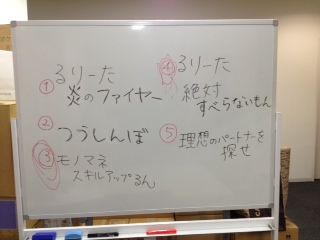 ① るりーた
炎のファイヤー
② つうしんぼ
③ モノマネ
スキルアップるん
④ るりーた
絶対
すべらないもん
⑤ 理想のパートナーを
探せ